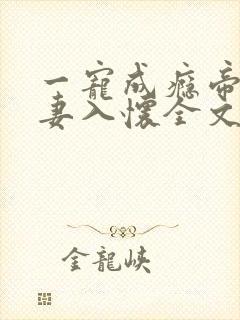 一寵成癮帝
妻入懷全文
金龍峽